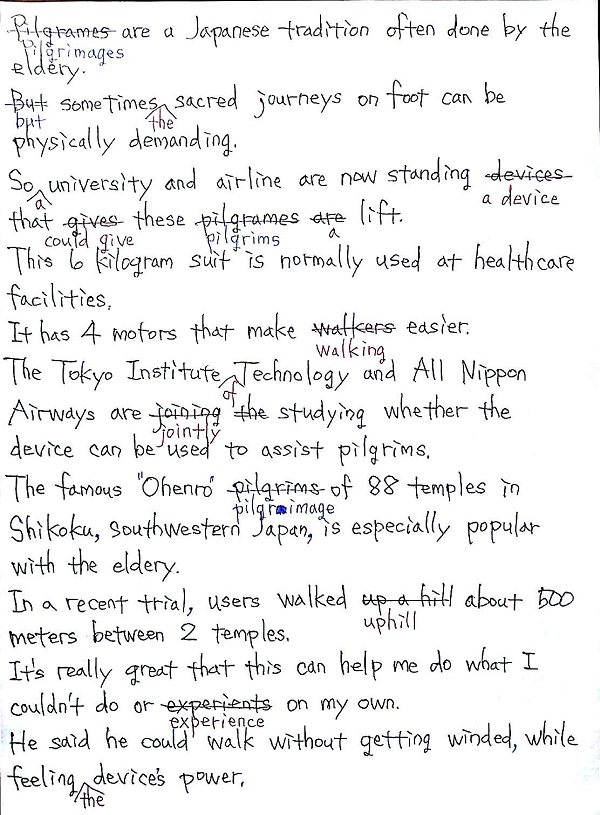 Pilgrames are a Japanese tradition often done by the
Pilgrimages
eldery.
But sometimes sacred journeys on foot can be
but the
physically demanding.
So university and airline are now standing devices
a a device
that gives these pilgrames are lift.
could give pilgrims a
This 6 kilogram suit is normally used at healthcare
facilities.
It has 4 motors that make walkers easier.
walking
The Tokyo Institute Technology and All Nippon
of
Airways are joining the studying whether the
jointly
device can be used to assist pilgrims.
The famous "Ohenro" pilgrims of 88 temples in
pilgrimage
Shikoku, southwestern Japan, is especially popular
with the eldery.
In a recent trial, users walked up a hill about 500
uphill
meters between 2 temples.
It's really great that this can help me do what I
couldn't do or experients on my own.
experience
He said he could walk without getting winded, while
feeling device's power.
the